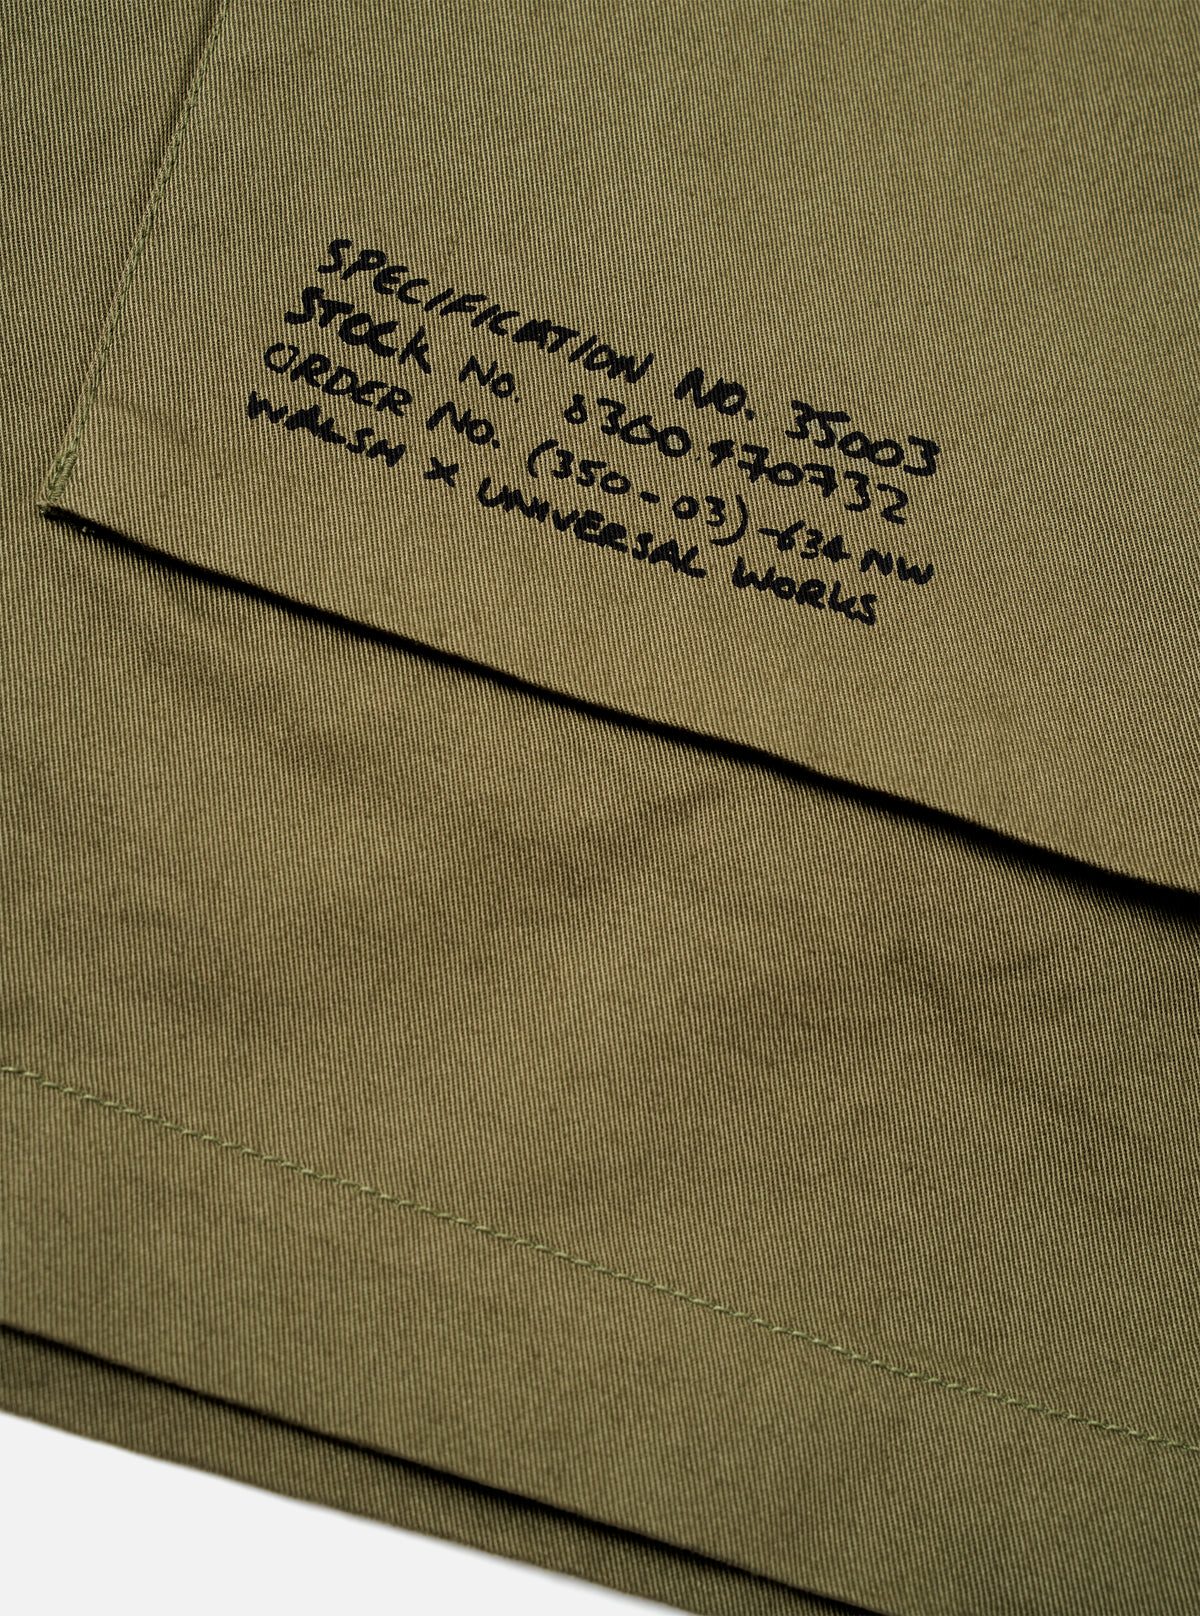 SPECIFICATION NO. 35003
STOCK NO. 8300.470732
ORDER NO. (350-03)-634 NW
WALSH X UNIVERSAL WORKS